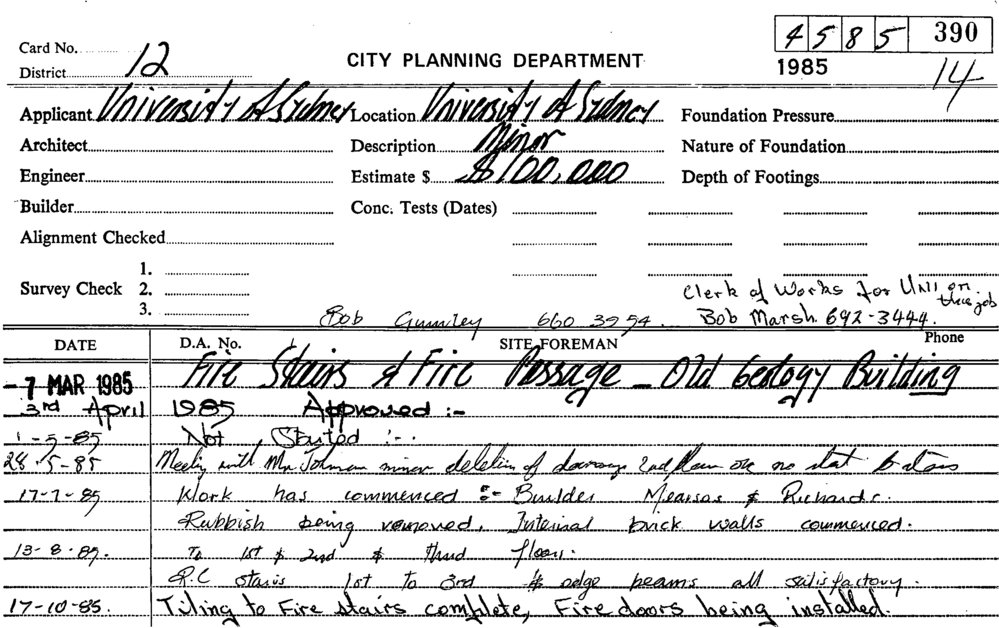 4 5 8 5 390
Card No. 12
CITY PLANNING DEPARTMENT
District
1985 14
Applicant University of Sydney Location University of Sydney Foundation Pressure
Architect Description Minor Nature of Foundation
Engineer Estimate $ $100,000 Depth of Footings
Builder Conc. Tests (Dates)
Alignment Checked
1.
Survey Check 2.
3.
Clerk of Works for UNI on this job
Bob Gumley 660 3954 Bob Marsh 692-3444.
DATE D.A. No. SITE FOREMAN Phone
-7 MAR 1985 Fire Stairs & Fire Passage - Old Geology Building
3rd April 1985 Approved :-
1-5-85 Not Started :-.
28-5-85 Meeting with Mr minor deletion of 2nd no
17-7-85 Work has commenced :- Builder &
Rubbish being removed. Internal brick walls commenced.
13-8-85. To 1st & 2nd & third floor.
R.C stairs 1st to 3rd & edge beams all satisfactory.
17-10-85. Tiling to Fire stairs complete, Fire doors being installed.